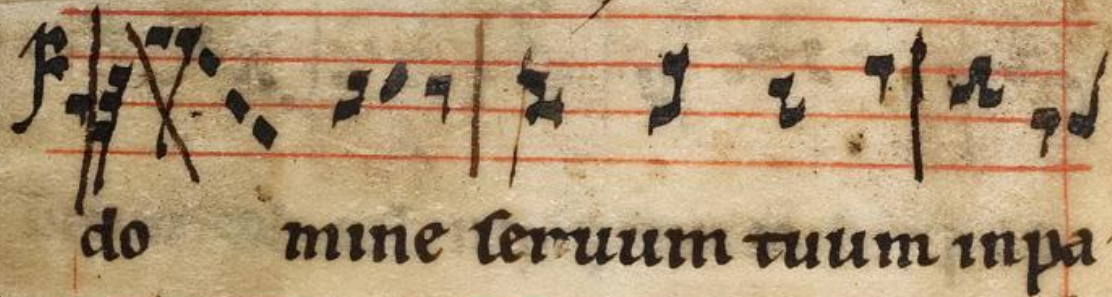 do mine seruum tuum inpa